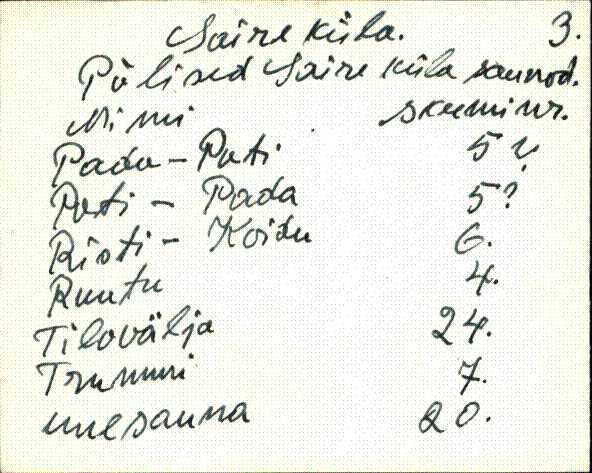 Saire küla. 3.
Põlised Saire küla saunad.
Nimi skeemi nr.
Pada-Peti 5?
Peti - Pada 5?
Risti - Koidu 6.
Ruutu 4.
Tilovälja 24.
Trummi 7.
Uuesauna 20.